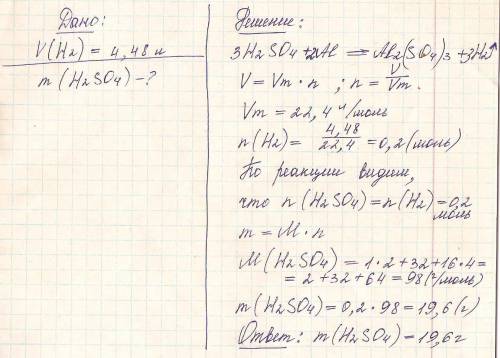 Дано:
V(H2) = 4,48 л
m(H2SO4) - ?
Решение:
3H2SO4 + 2Al = Al2(SO4)3 + 3H2↑
V = Vm · n ; n = V/Vm.
Vm = 22,4 л/моль
n(H2) = 4,48/22,4 = 0,2 (моль)
По реакции видим,
что n(H2SO4) = n(H2) = 0,2 моль
m = M · n
M(H2SO4) = 1 · 2 + 32 + 16 · 4 =
= 2 + 32 + 64 = 98 (г/моль)
m(H2SO4) = 0,2 · 98 = 19,6 (г)
Ответ: m(H2SO4) = 19,6 г